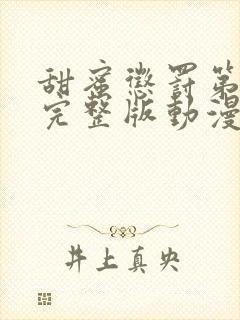 甜蜜懲罰第
完整版動漫
井上真央